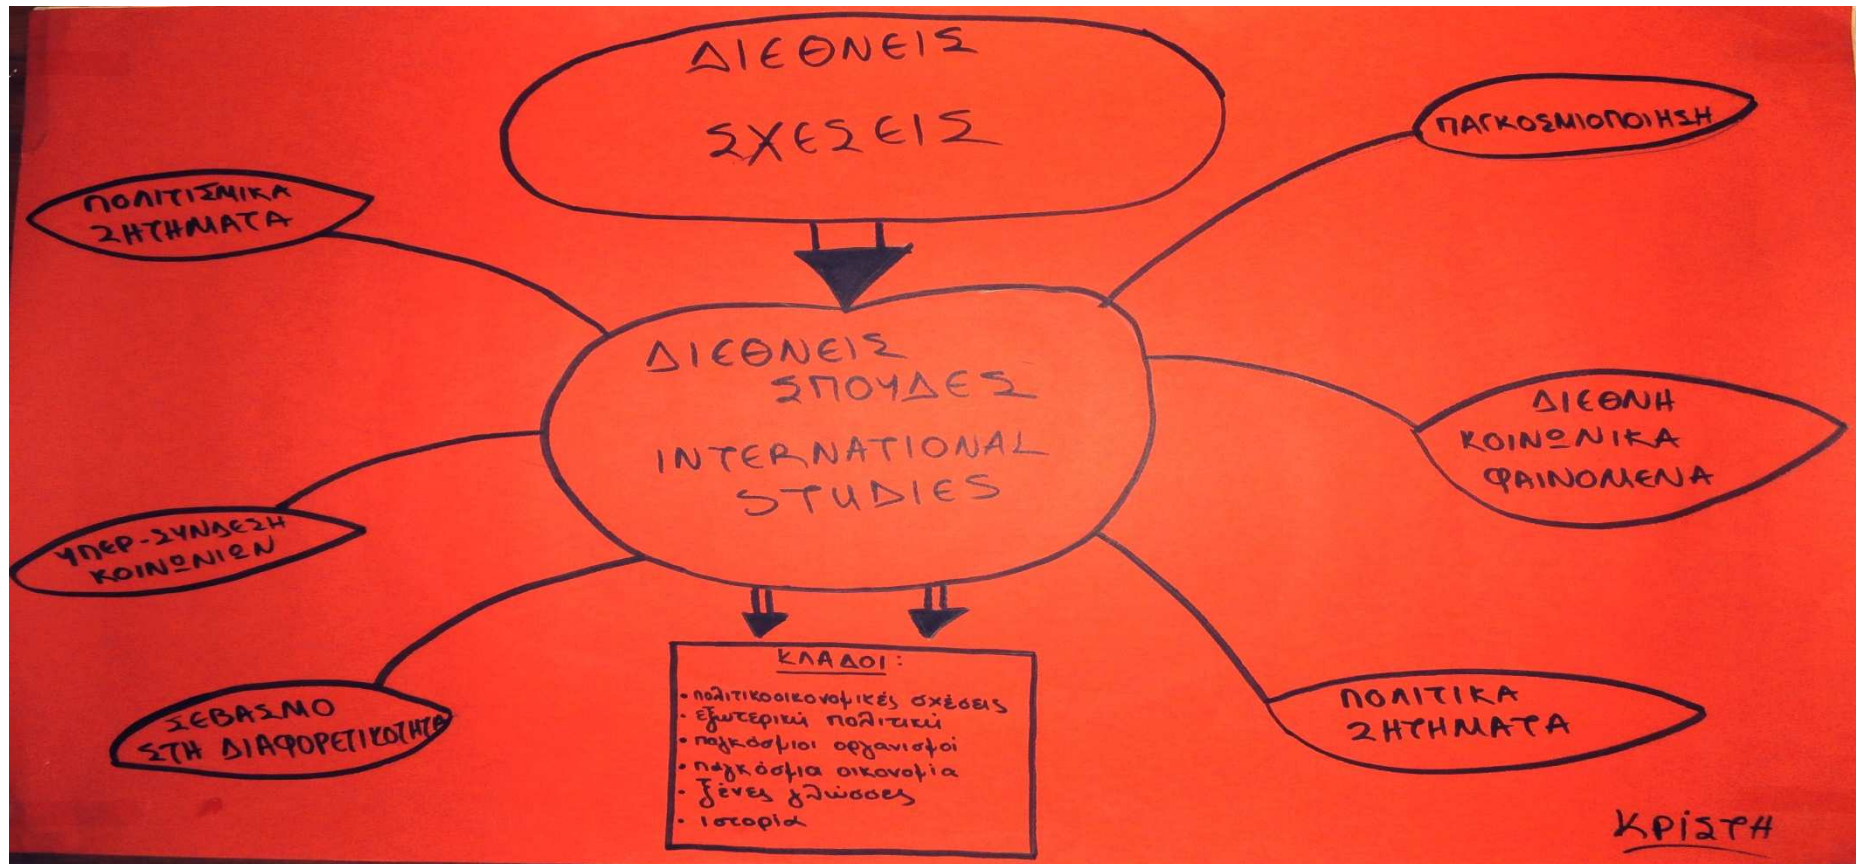 ΔΙΕΘΝΕΙΣ
ΣΧΕΣΕΙΣ
ΠΑΓΚΟΣΜΙΟΠΟΙΗΣΗ
ΠΟΛΙΤΙΣΜΙΚΑ
ΖΗΤΗΜΑΤΑ
ΔΙΕΘΝΕΙΣ
ΣΠΟΥΔΕΣ
INTERNATIONAL
STUDIES
ΔΙΕΘΝΗ
ΚΟΙΝΩΝΙΚΑ
ΦΑΙΝΟΜΕΝΑ
ΥΠΕΡ-ΣΥΝΔΕΣΗ
ΚΟΙΝΩΝΙΩΝ
ΣΕΒΑΣΜΟ
ΣΤΗ ΔΙΑΦΟΡΕΤΙΚΟΤΗΤΑ
ΠΟΛΙΤΙΚΑ
ΖΗΤΗΜΑΤΑ
ΚΛΑΔΟΙ:
• πολιτικοοικονομικές σχέσεις
• εξωτερική πολιτική
• παγκόσμιοι οργανισμοί
• παγκόσμια οικονομία
• ξένες γλώσσες
• ιστορία
ΚΡίΣΤΗ